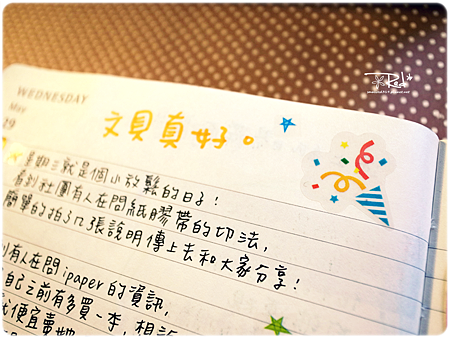 WEDNESDAY
May
29
文具真好。
星期三就是個小放鬆的日子！
看到社團有人在問紙膠帶的切法，
簡單的拍了幾張說明傳上去和大家分享！
有人在問ipaper的資訊，
自己之前有多買一本，想說
便宜賣
Red